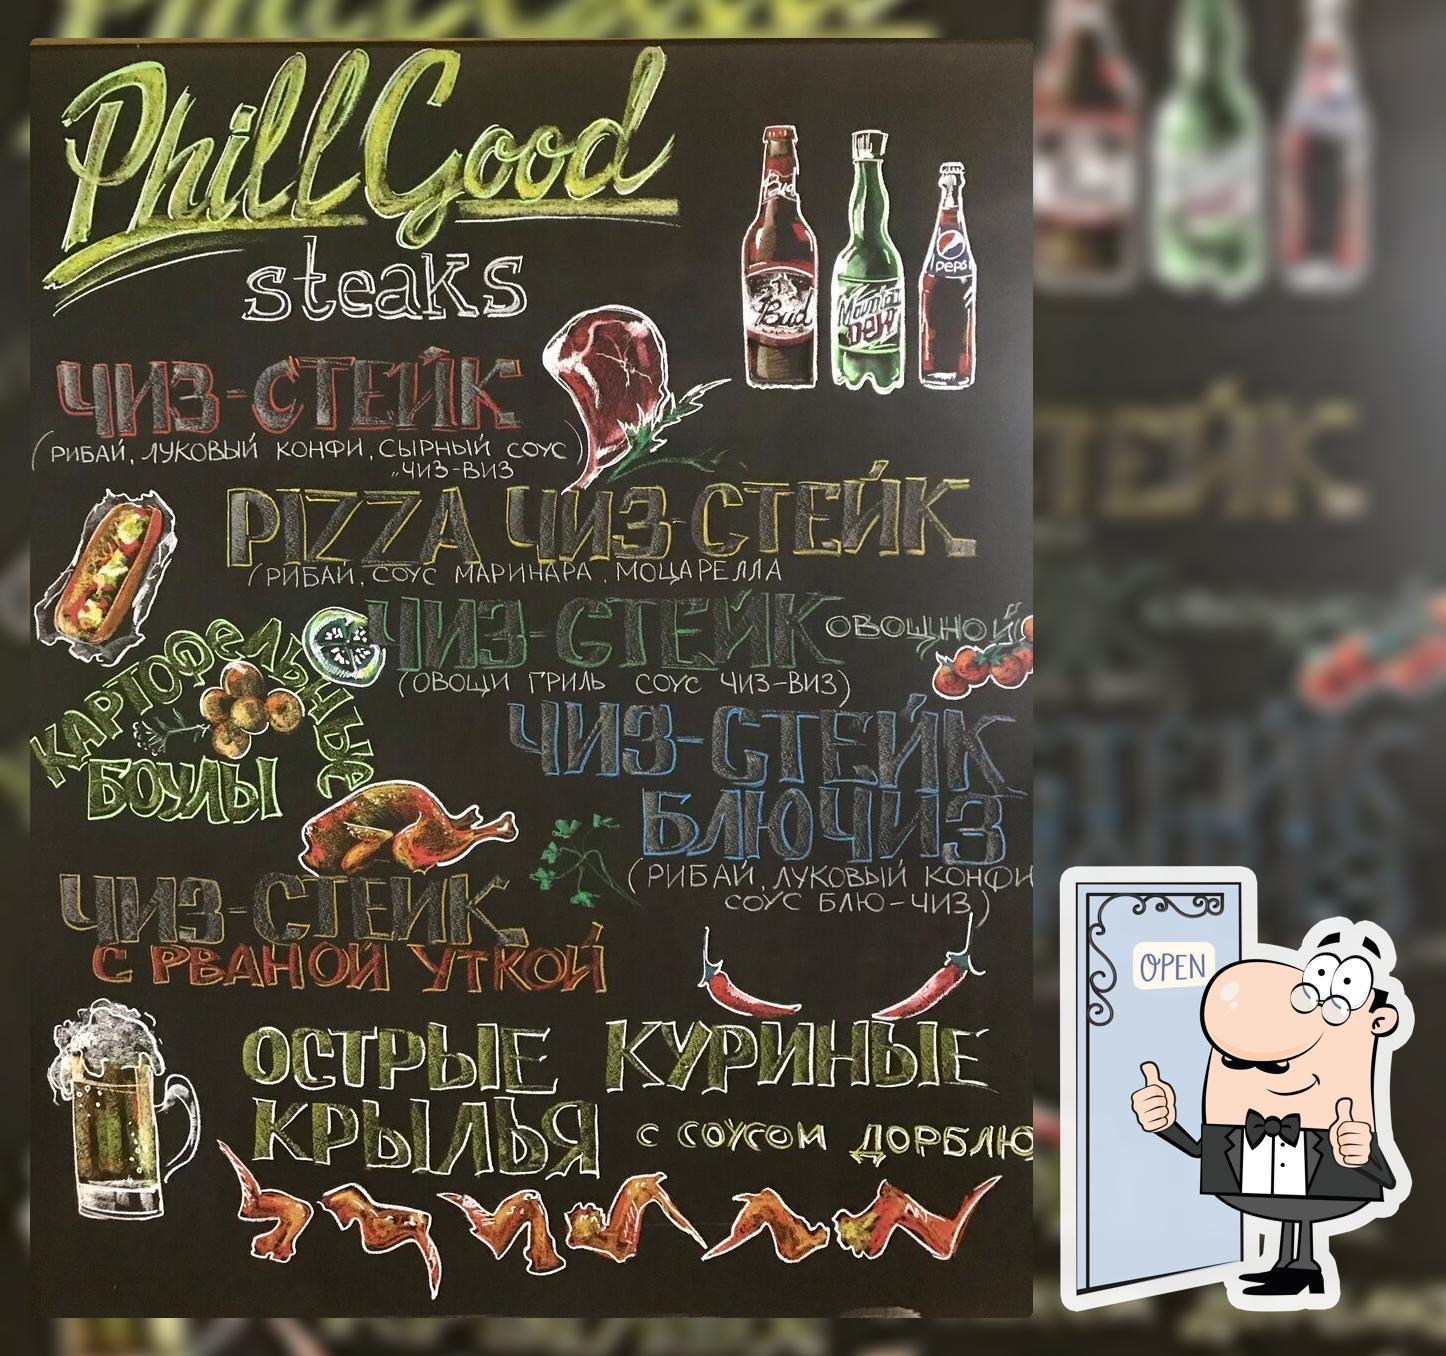 PhillGood
steaks
Bud
Bud
Mountain
DEW
pepsi
ЧИЗ-СТЕЙК
(РИБАЙ, ЛУКОВЫЙ КОНФИ, СЫРНЫЙ СОУС)
"ЧИЗ-ВИЗ
PIZZA ЧИЗ-СТЕЙК
(РИБАЙ, СОУС МАРИНАРА, МОЦАРЕЛЛА
ЧИЗ-СТЕЙК ОВОЩНОЙ
(ОВОЩИ ГРИЛЬ СОУС ЧИЗ-ВИЗ)
КАРТОФЕЛЬНЫЕ
БОУЛЫ
ЧИЗ-СТЕЙК
БЛЮЧИЗ
(РИБАЙ, ЛУКОВЫЙ КОНФИ
СОУС БЛЮ-ЧИЗ)
ЧИЗ-СТЕЙК
С РВАНОЙ УТКОЙ
ОСТРЫЕ КУРИНЫЕ
КРЫЛЬЯ С СОУСОМ ДОРБЛЮ
OPEN